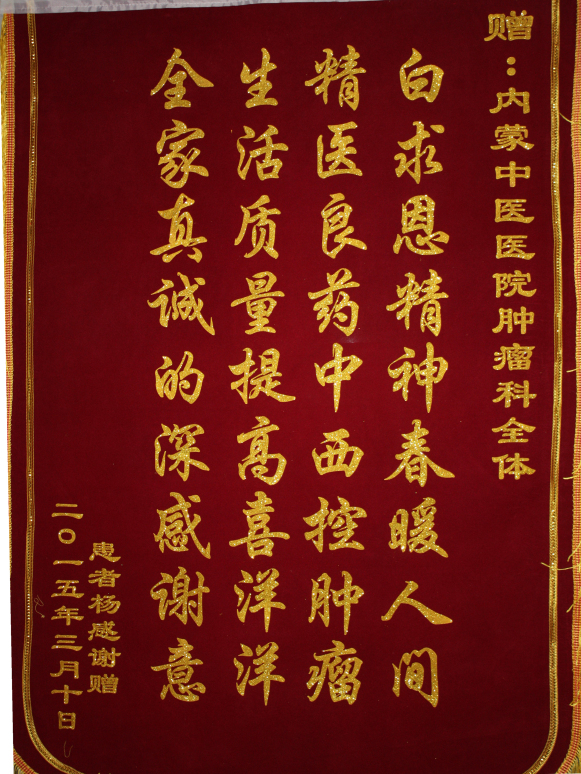 赠：内蒙中医医院肿瘤科全体
白求恩精神春暖人间
精医良药中西控肿瘤
生活质量提高喜洋洋
全家真诚的深感谢意
患者杨感谢赠
二〇一五年三月十日